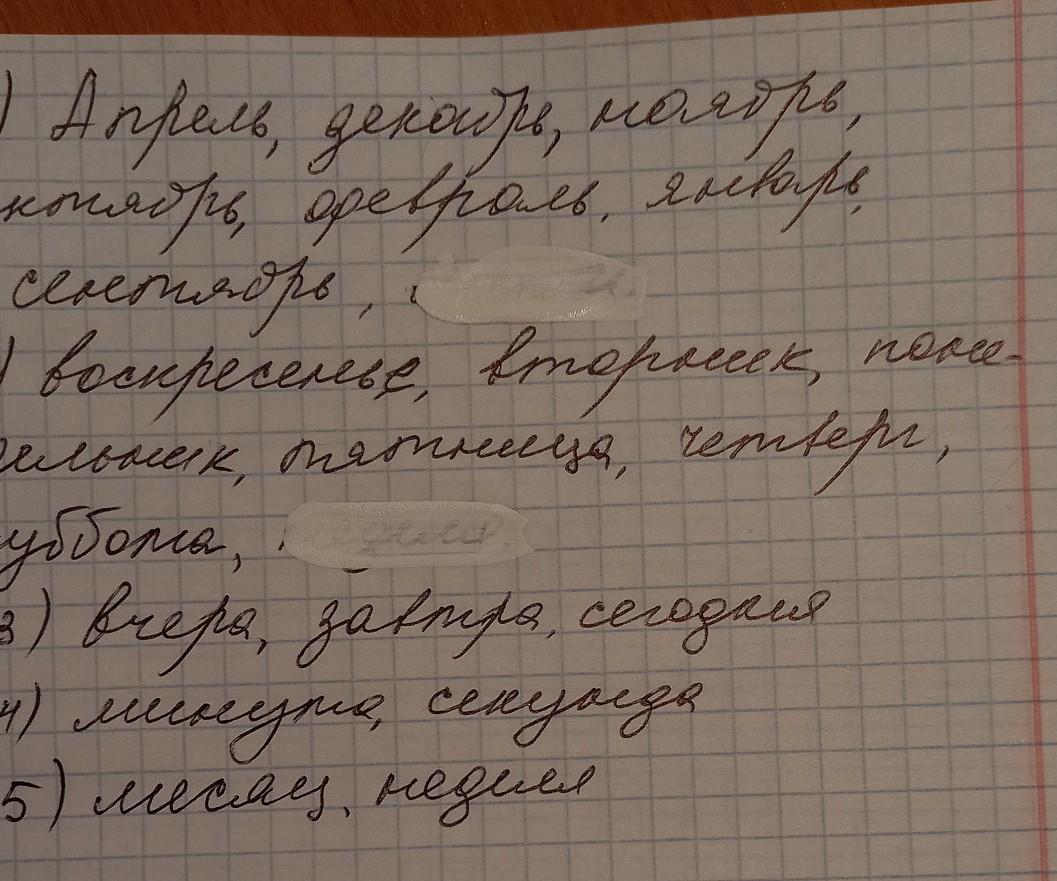 ) Апрель, декабрь, ноябрь,
ктябрь, февраль, январь,
сентябрь,
) воскресенье, вторник, поне-
дельник, пятница, четверг,
уббота,
3) вчера, завтра, сегодня
4) минута, секунда
5) месяц, неделя